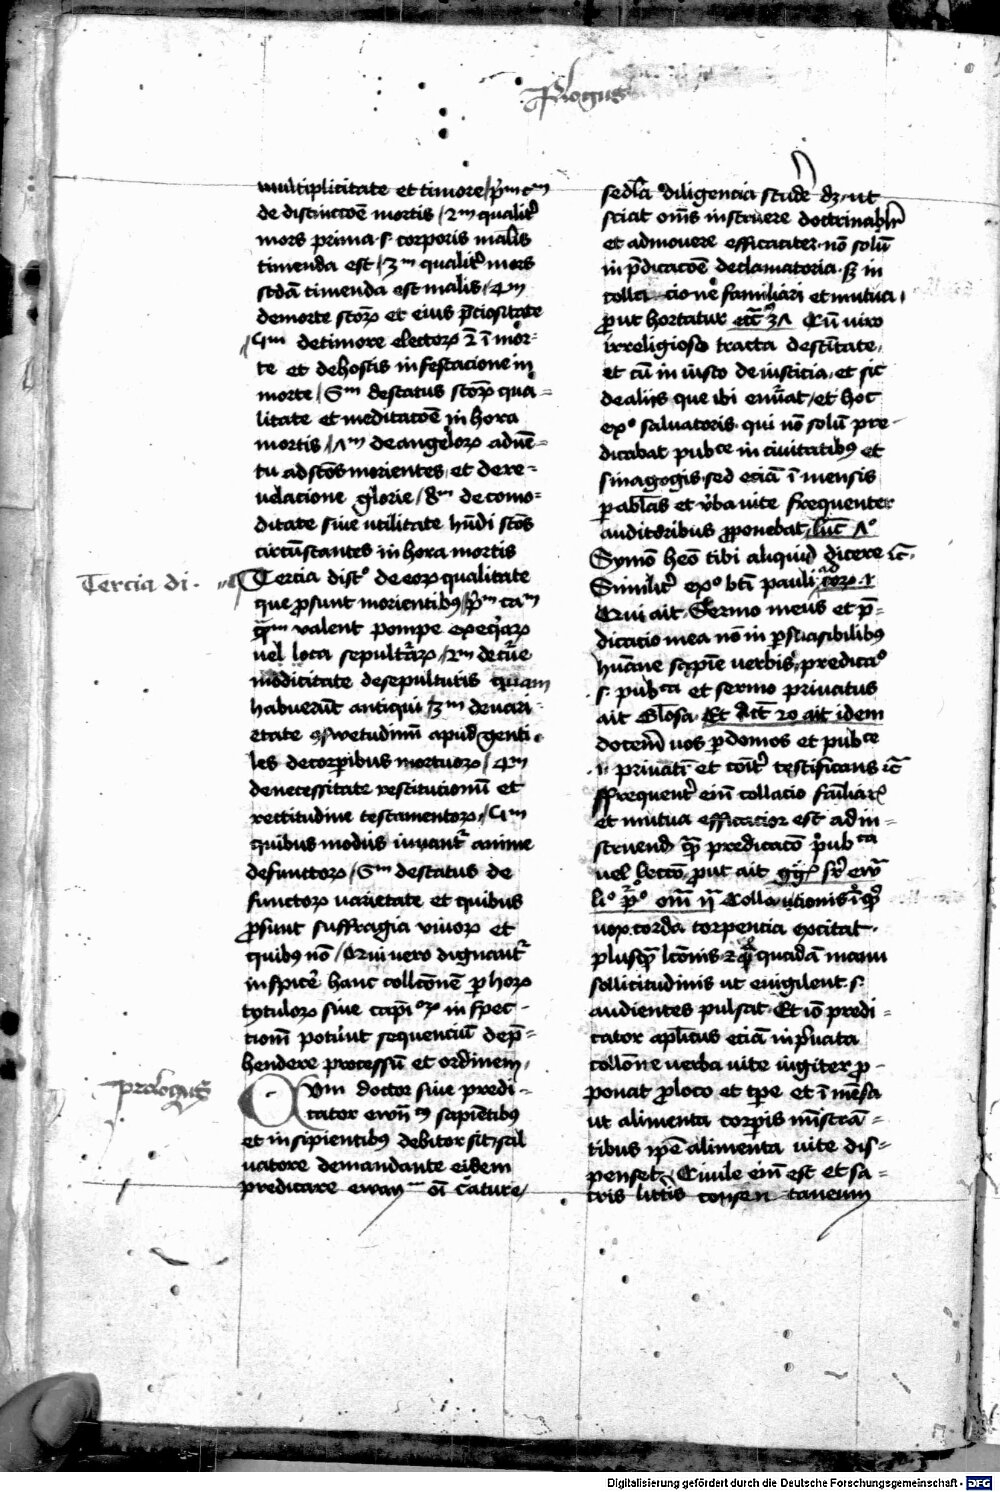 Prologus
multiplicitate et timore / pm̄ cm̄
de distinctoē mortis / 2m qualitr̄
mors prima .s. corporis malis
timenda est / 3m qualitr̄ mors
scdā timenda est malis / 4m
de morte scōrꝝ et eius p̄ciositate
5m de timore electorꝝ 2 ī mor-
te et de hostis infestacione in
morte / 6m de status scōrꝝ qua=
litate et meditacōē in hora
mortis / 7m de angelorꝝ aduē-
tu ad scōs morientes et de re=
uelacione glorie / 8m de como=
ditate siue utilitate hn̄di scōs
circūstantes in hora mortis
Tercia di.
Tercia disto de eorꝝ qualitate
que prosunt morientibus /
valent pompe exeq̄arꝝ
vel loca sepulturarꝝ / 2m de
modicitate de sepulturis quam
habuerūt antiqui / 3m de uari-
etate ꝯswetudinū apud genti-
les de corporibus mortuorꝝ / 4m
de necessitate restitucionū et
rectitudine testamentorꝝ / 5m
quibus modis iuuant̄ anime
defunctorꝝ / 6m de status de
functorꝝ varietate et quibus
prosunt suffragia viuorꝝ et
quibus nō / Qui vero dignant̄
inspicere hanc collcōnē ꝑ horꝝ
tytulorꝝ siue capiorꝝ in spec-
tionē poterunt sequenciū dep̄=
hendere processū et ordinem /
prologus
QVm doctor siue predi-
cator ewn̄ m sapiētibus
et insipientibus debitor sit sal
uatore demandante eidem
predicare ewangm oī creature /
sedla diligencia studere dꝫ ut
sciat om̄s instruere doctrinabilr̄
et admouere efficaciter nō solū
in p̄dicacōē declamatoria sꝫ in
collacione familiari et mutua
prout hortatur ecc̄ 37 Cū viro
irreligioso tracta de sc̄itate
et cū iniusto de iusticia et sic
de aliis que ibi enūat et hoc
exo saluatoris qui nō solū pre-
dicabat pubce in ciuitatibus et
sinagogis sed eciā ī mensis
parabl̄as et v̄ba uite frequenter
auditoribus ꝓponebat luc̄ 7o
Symō heō tibi aliquid dicere ic̄.
Similitr̄ exo bt̄i pauli corꝝ
Qui ait Sermo meus et p̄-
dicacio mea nō in ꝑsuasibilibus
humane sapiēe verbis predicao
.s. pubca et sermo priuatus
ait Glosa Et Act̄ 20 ait idem
docerē uos ꝑ domos et pubce
.i. priuatī et cōitr̄ testificans ic̄
ffrequent̄ em̄ collacio familiaris
et mutua efficacior est ad in=
struend quā predicacō pubca
vel lectō prout ait
li° p° om̄
vox corda torpencia excitat
plusquā lcōnis quadā manu
sollicitudinis ut euigilent .s.
audientes pulsat Et iō predi=
cator aplicus eciā in p̄uata
collōne uerba uite iugiter ꝓ-
ponat ꝓ loco et tpe et ī mēsa
ut alimenta corpis mīstrā=
tibus ipē alimenta uite dis=
penset Ciuile em̄ est et sa=
cris litt̄is consen taneum
Digitalisierung gefördert durch die Deutsche Forschungsgemeinschaft - DFG